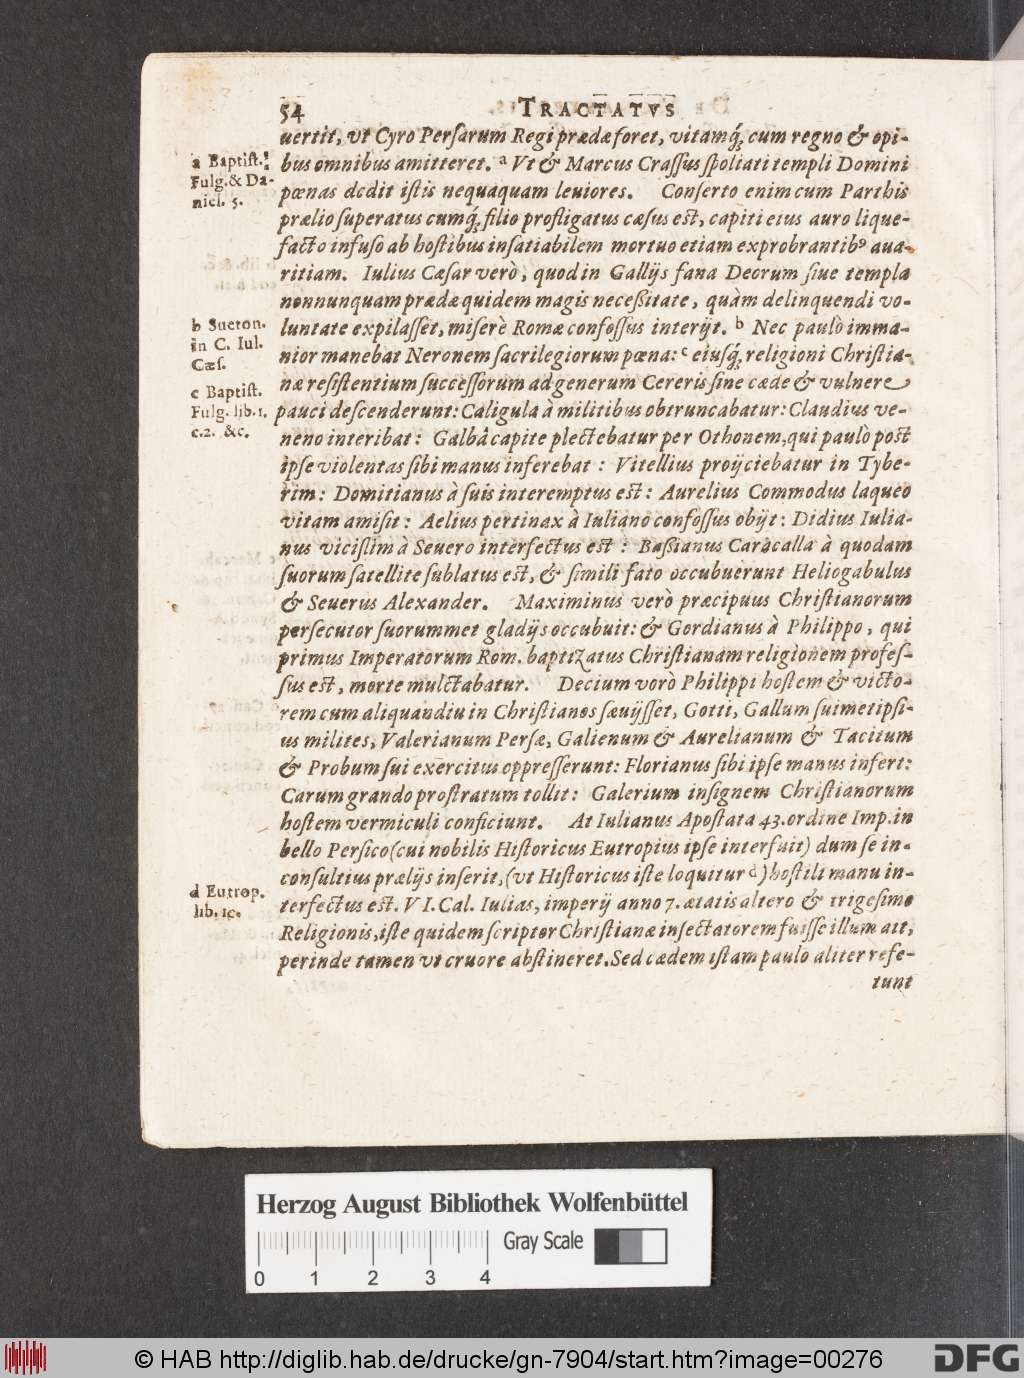 54 TRACTATVS
uertit, vt Cyro Persarum Regi prædæ foret, vitamq́; cum regno & opi-
bus omnibus amitteret. a Vt & Marcus Crassus spoliati templi Domini
pœnas dedit istis nequaquam leuiores. Conserto enim cum Parthis
prælio superatus cumq́; filio profligatus cæsus est, capiti eius auro lique-
facto infuso ab hostibus insatiabilem mortuo etiam exprobrantibꝰ aua-
ritiam. Iulius Cæsar verò, quod in Gallijs fana Deorum siue templa
nonnunquam prædæ quidem magis necessitate, quàm delinquendi vo-
luntate expilasset, miserè Romæ confossus interijt. b Nec paulò imma-
nior manebat Neronem sacrilegiorum pœna: c eiusq́; religioni Christia-
næ resistentium successorum ad generum Cereris sine cæde & vulnere
pauci descenderunt: Caligula à militibus obtruncabatur: Claudius ve-
neno interibat: Galba capite plectebatur per Othonem, qui paulò post
ipse violentas sibi manus inferebat: Vitellius proijciebatur in Tybe-
rim: Domitianus à suis interemptus est: Aurelius Commodus laqueo
vitam amisit: Aelius pertinax à Iuliano confossus obijt: Didius Iulia-
nus vicissim à Seuero interfectus est: Bassianus Caracalla à quodam
suorum satellite sublatus est, & simili fato occubuerunt Heliogabulus
& Seuerus Alexander. Maximinus verò præcipuus Christianorum
persecutor suorummet gladijs occubuit: & Gordianus à Philippo, qui
primus Imperatorum Rom. baptizatus Christianam religionem profes-
sus est, morte mulctabatur. Decium vorò Philippi hostem & victo-
rem cum aliquandiu in Christianos sæuijsset, Gotti, Gallum suimetipsi-
us milites, Valerianum Persæ, Galienum & Aurelianum & Tacitum
& Probum sui exercitus oppresserunt: Florianus sibi ipse manus infert:
Carum grando prostratum tollit: Galerium insignem Christianorum
hostem vermiculi conficiunt. At Iulianus Apostata 43. ordine Imp. in
bello Persico (cui nobilis Historicus Eutropius ipse interfuit) dum se in-
consultius prælijs inserit, (vt Historicus iste loquitur d) hostili manu in-
terfectus est. VI. Cal. Iulias, imperij anno 7. ætatis altero & trigesimo
Religionis, iste quidem scriptor Christianæ insectatorem fuisse illum ait,
perinde tamen vt cruore abstineret. Sed cædem istam paulo aliter refe-
tunt
a Baptist.
Fulg. & Da-
niel. 5.
b Sueton.
in C. Iul.
Cæs.
c Baptist.
Fulg. lib. 1.
c. 2. &c.
d Eutrop.
lib. 10.
Herzog August Bibliothek Wolfenbüttel
Gray Scale
0 1 2 3 4
© HAB http://diglib.hab.de/drucke/gn-7904/start.htm?image=00276
DFG